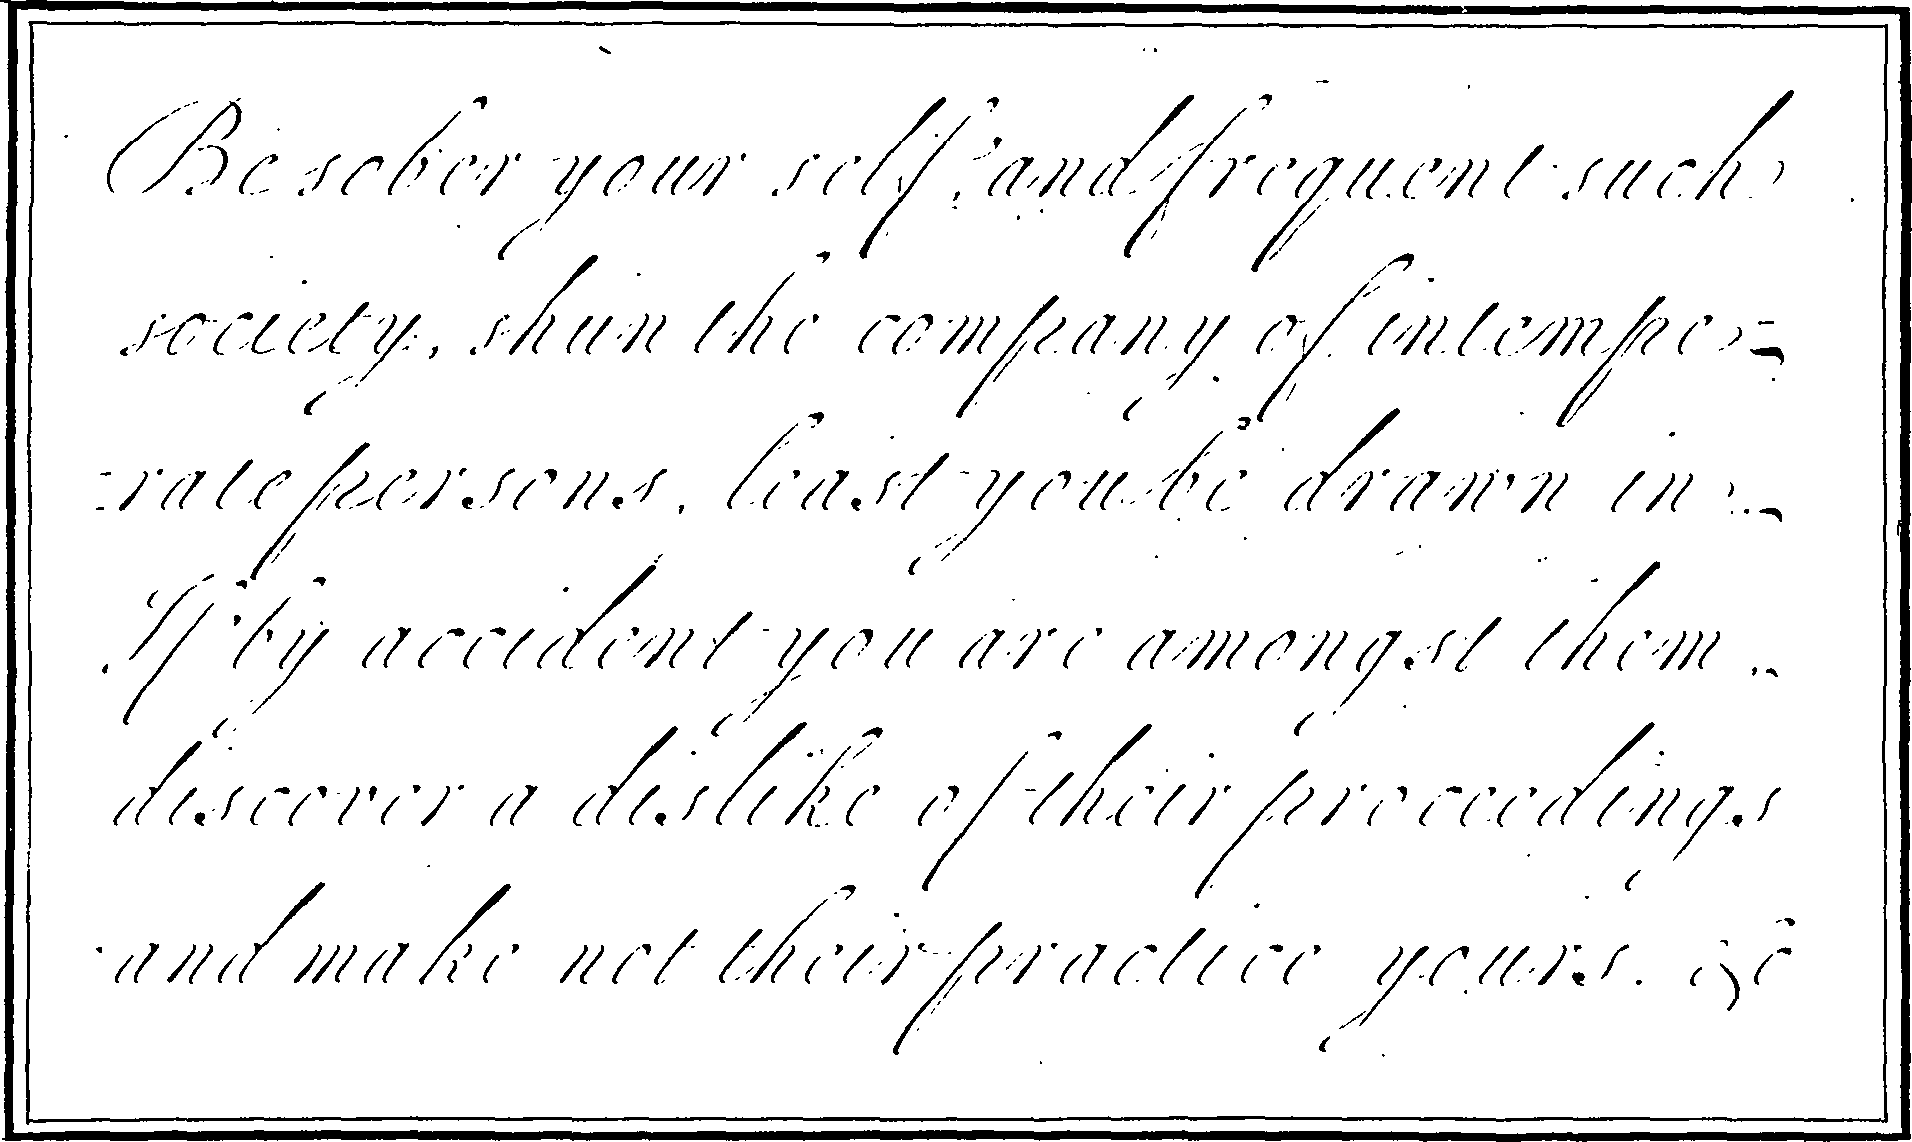 Be sober your self, and frequent such
society, shun the company of intempe=
=rate persons, least you be drawn in.
If by accident you are amongst them
discover a dislike of their proceedings
and make not their practice yours. &c